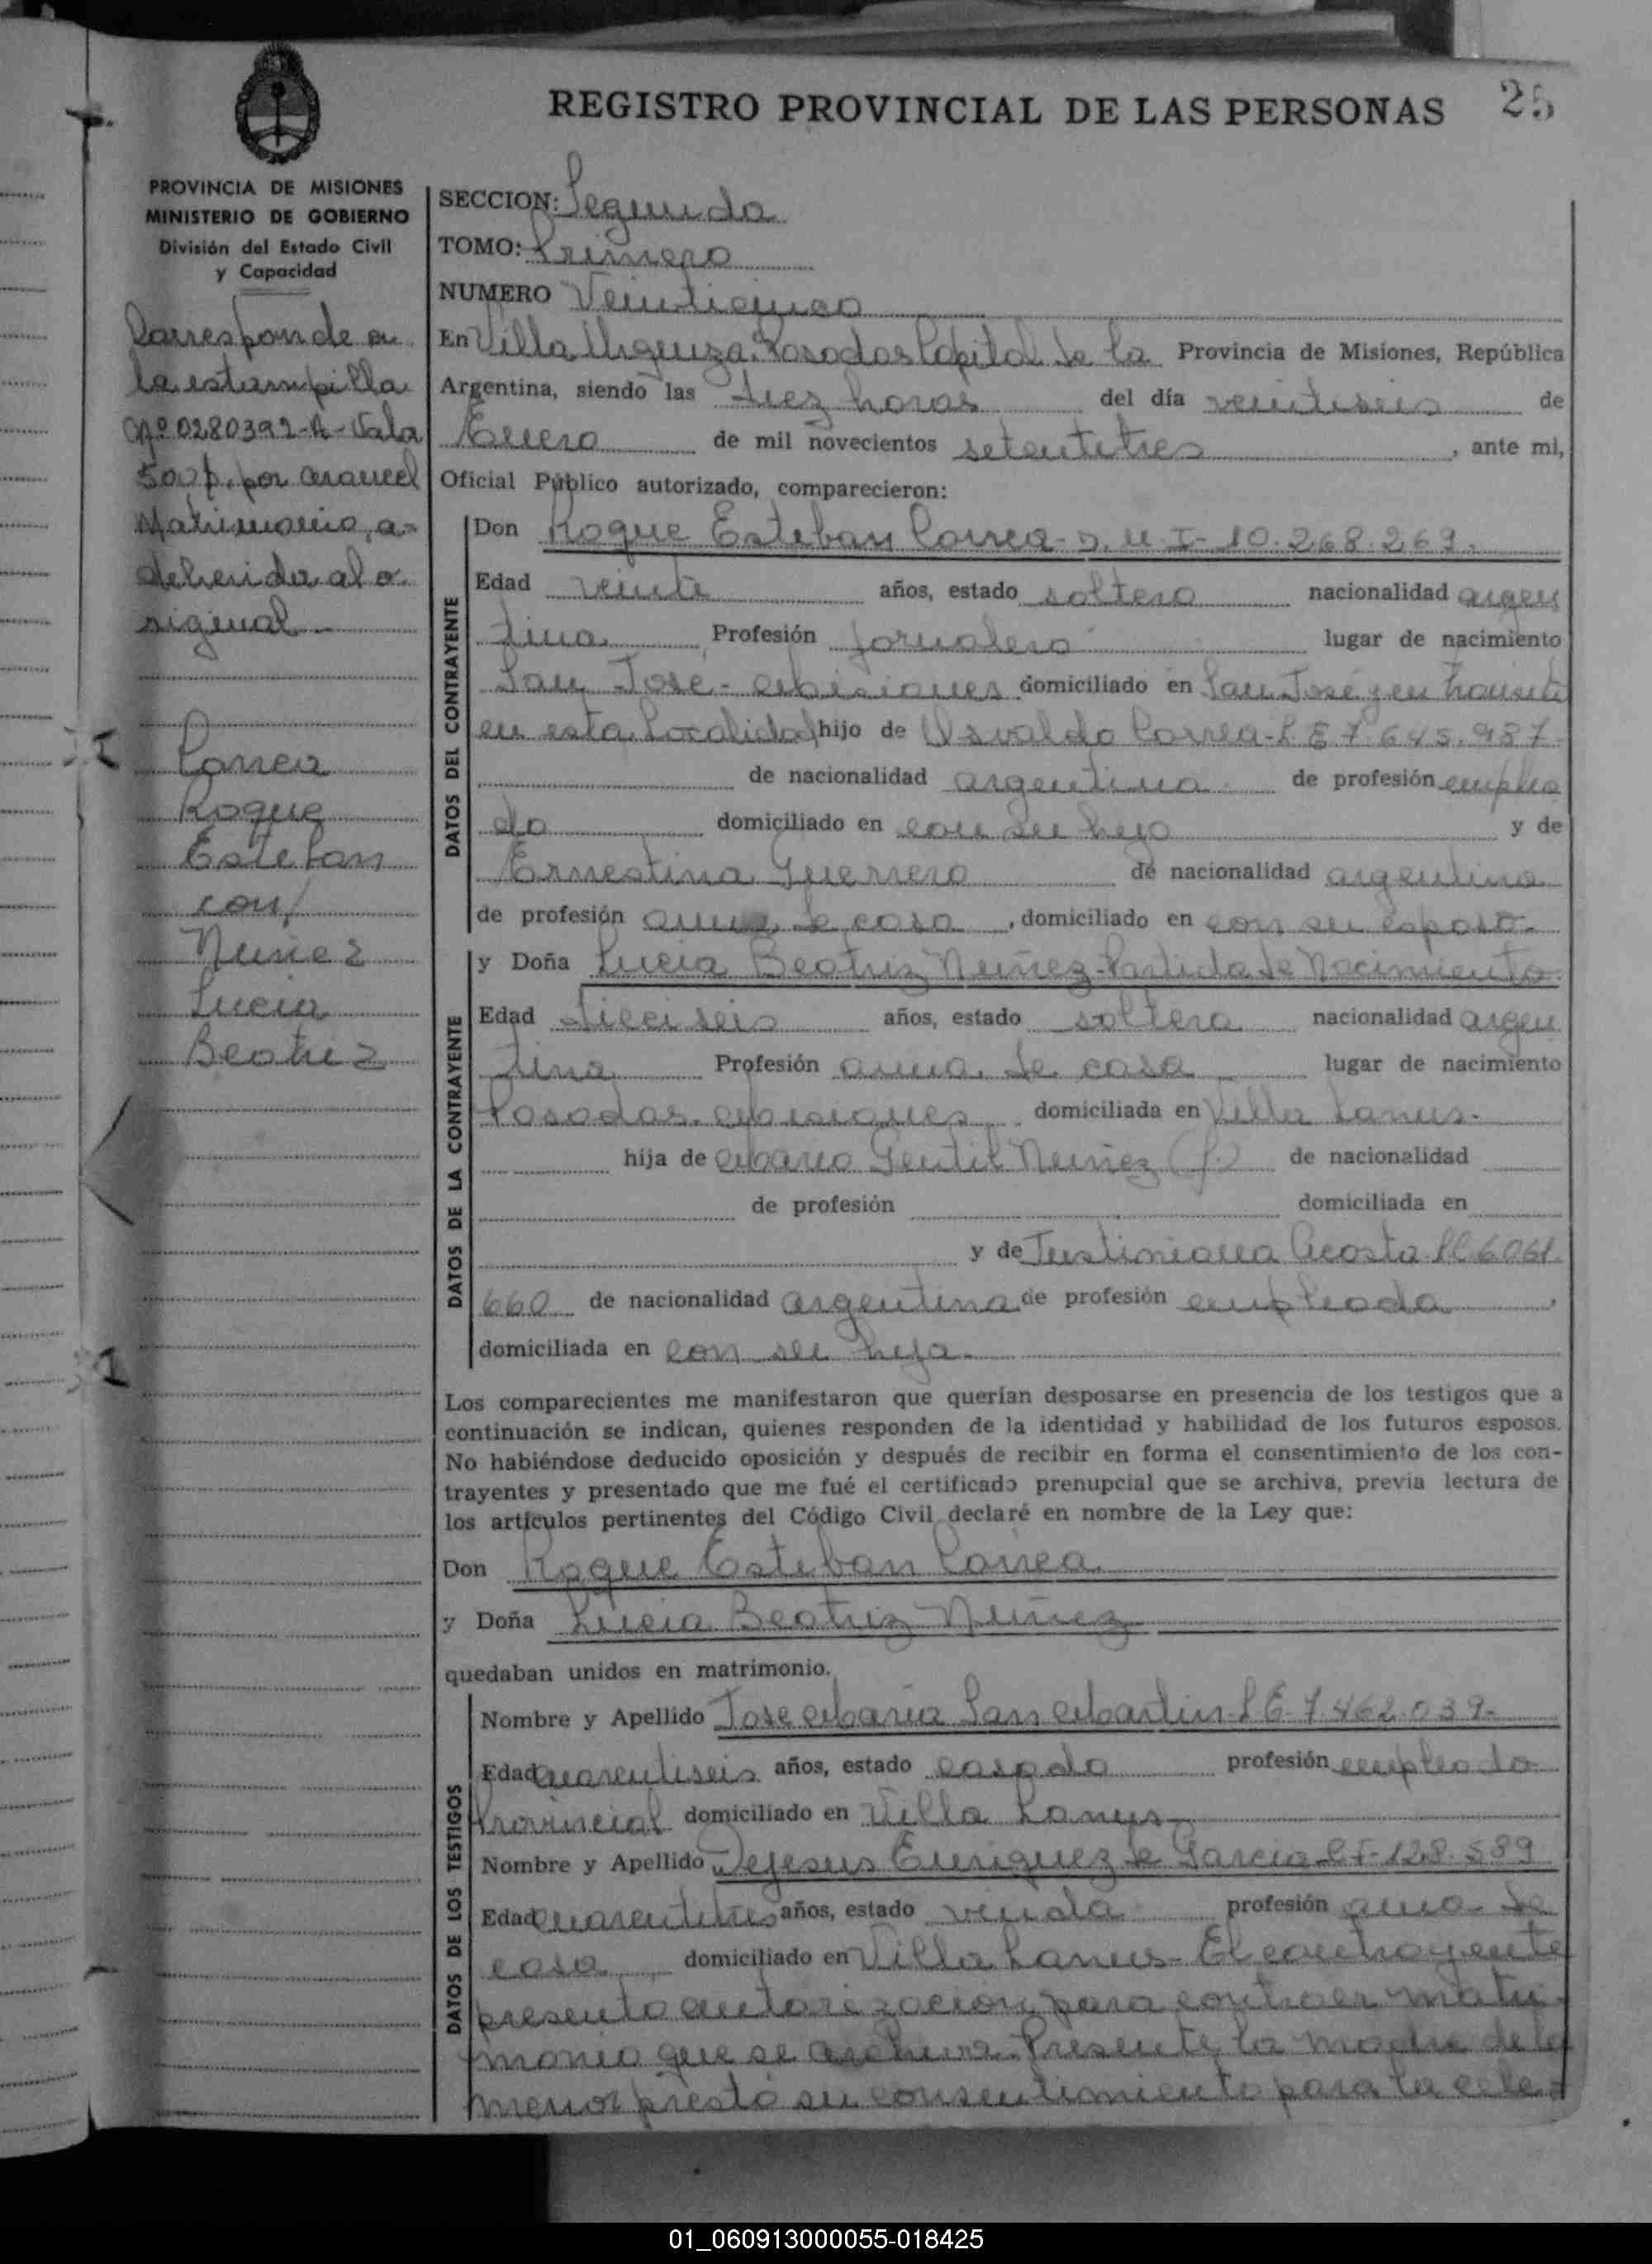 REGISTRO PROVINCIAL DE LAS PERSONAS 25
PROVINCIA DE MISIONES
MINISTERIO DE GOBIERNO
División del Estado Civil
y Capacidad
Corresponde a
la estampilla
Nº 0280392-A-Valor
500 p. por arancel
Matrimonio, a-
deherida al o-
riginal-
Correa
Roque
Esteban
con/
Nuñez
Lucia
Beatriz
SECCION: Segunda
TOMO: Primero
NUMERO Veinticinco
En Villa Urquiza. Posadas Capital de la Provincia de Misiones, República
Argentina, siendo las diez horas del día veintiseis de
Enero de mil novecientos setentitres, ante mi,
Oficial Público autorizado, comparecieron:
DATOS DEL CONTRAYENTE
Don Roque Esteban Correa- D.N.I- 10.268.269.
Edad veinte años, estado soltero nacionalidad argen
tina Profesión jornalero lugar de nacimiento
San José- Misiones domiciliado en San José y en transito
en esta Localidad hijo de Osvaldo Correa- L E 7.645.987
de nacionalidad argentina de profesión emplea
do domiciliado en con su hijo y de
Ernestina Guerrero de nacionalidad argentina
de profesión ama de casa, domiciliado en con su esposo.
DATOS DE LA CONTRAYENTE
y Doña Lucia Beatriz Nuñez- Partida de Nacimiento
Edad dieciseis años, estado soltera nacionalidad argen
tina Profesión ama de casa lugar de nacimiento
Posadas. Misiones domiciliada en Villa Lanus.
hija de Mario Gentil Nuñez (f.) de nacionalidad
de profesión domiciliada en
y de Justiniana Acosta LC 6061.
660 de nacionalidad argentina de profesión empleada,
domiciliada en con su hija.
Los comparecientes me manifestaron que querían desposarse en presencia de los testigos que a
continuación se indican, quienes responden de la identidad y habilidad de los futuros esposos.
No habiéndose deducido oposición y después de recibir en forma el consentimiento de los con-
trayentes y presentado que me fué el certificado prenupcial que se archiva, previa lectura de
los artículos pertinentes del Código Civil declaré en nombre de la Ley que:
Don Roque Esteban Correa
y Doña Lucia Beatriz Nuñez
quedaban unidos en matrimonio.
DATOS DE LOS TESTIGOS
Nombre y Apellido Jose Maria San Martin- L E- 7.462.039-
Edad cuarentiseis años, estado casado profesión empleado
Provincial domiciliado en Villa Lanus
Nombre y Apellido Dejesus Enriquez de Garcia- CI- 128.589
Edad cuarentitres años, estado viuda profesión ama de
casa domiciliado en Villa Lanus- El contrayente
presento autorización para contraer matri-
monio que se archiva. Presente la madre de la
menor prestó su consentimiento para la cele-
01_060913000055-018425